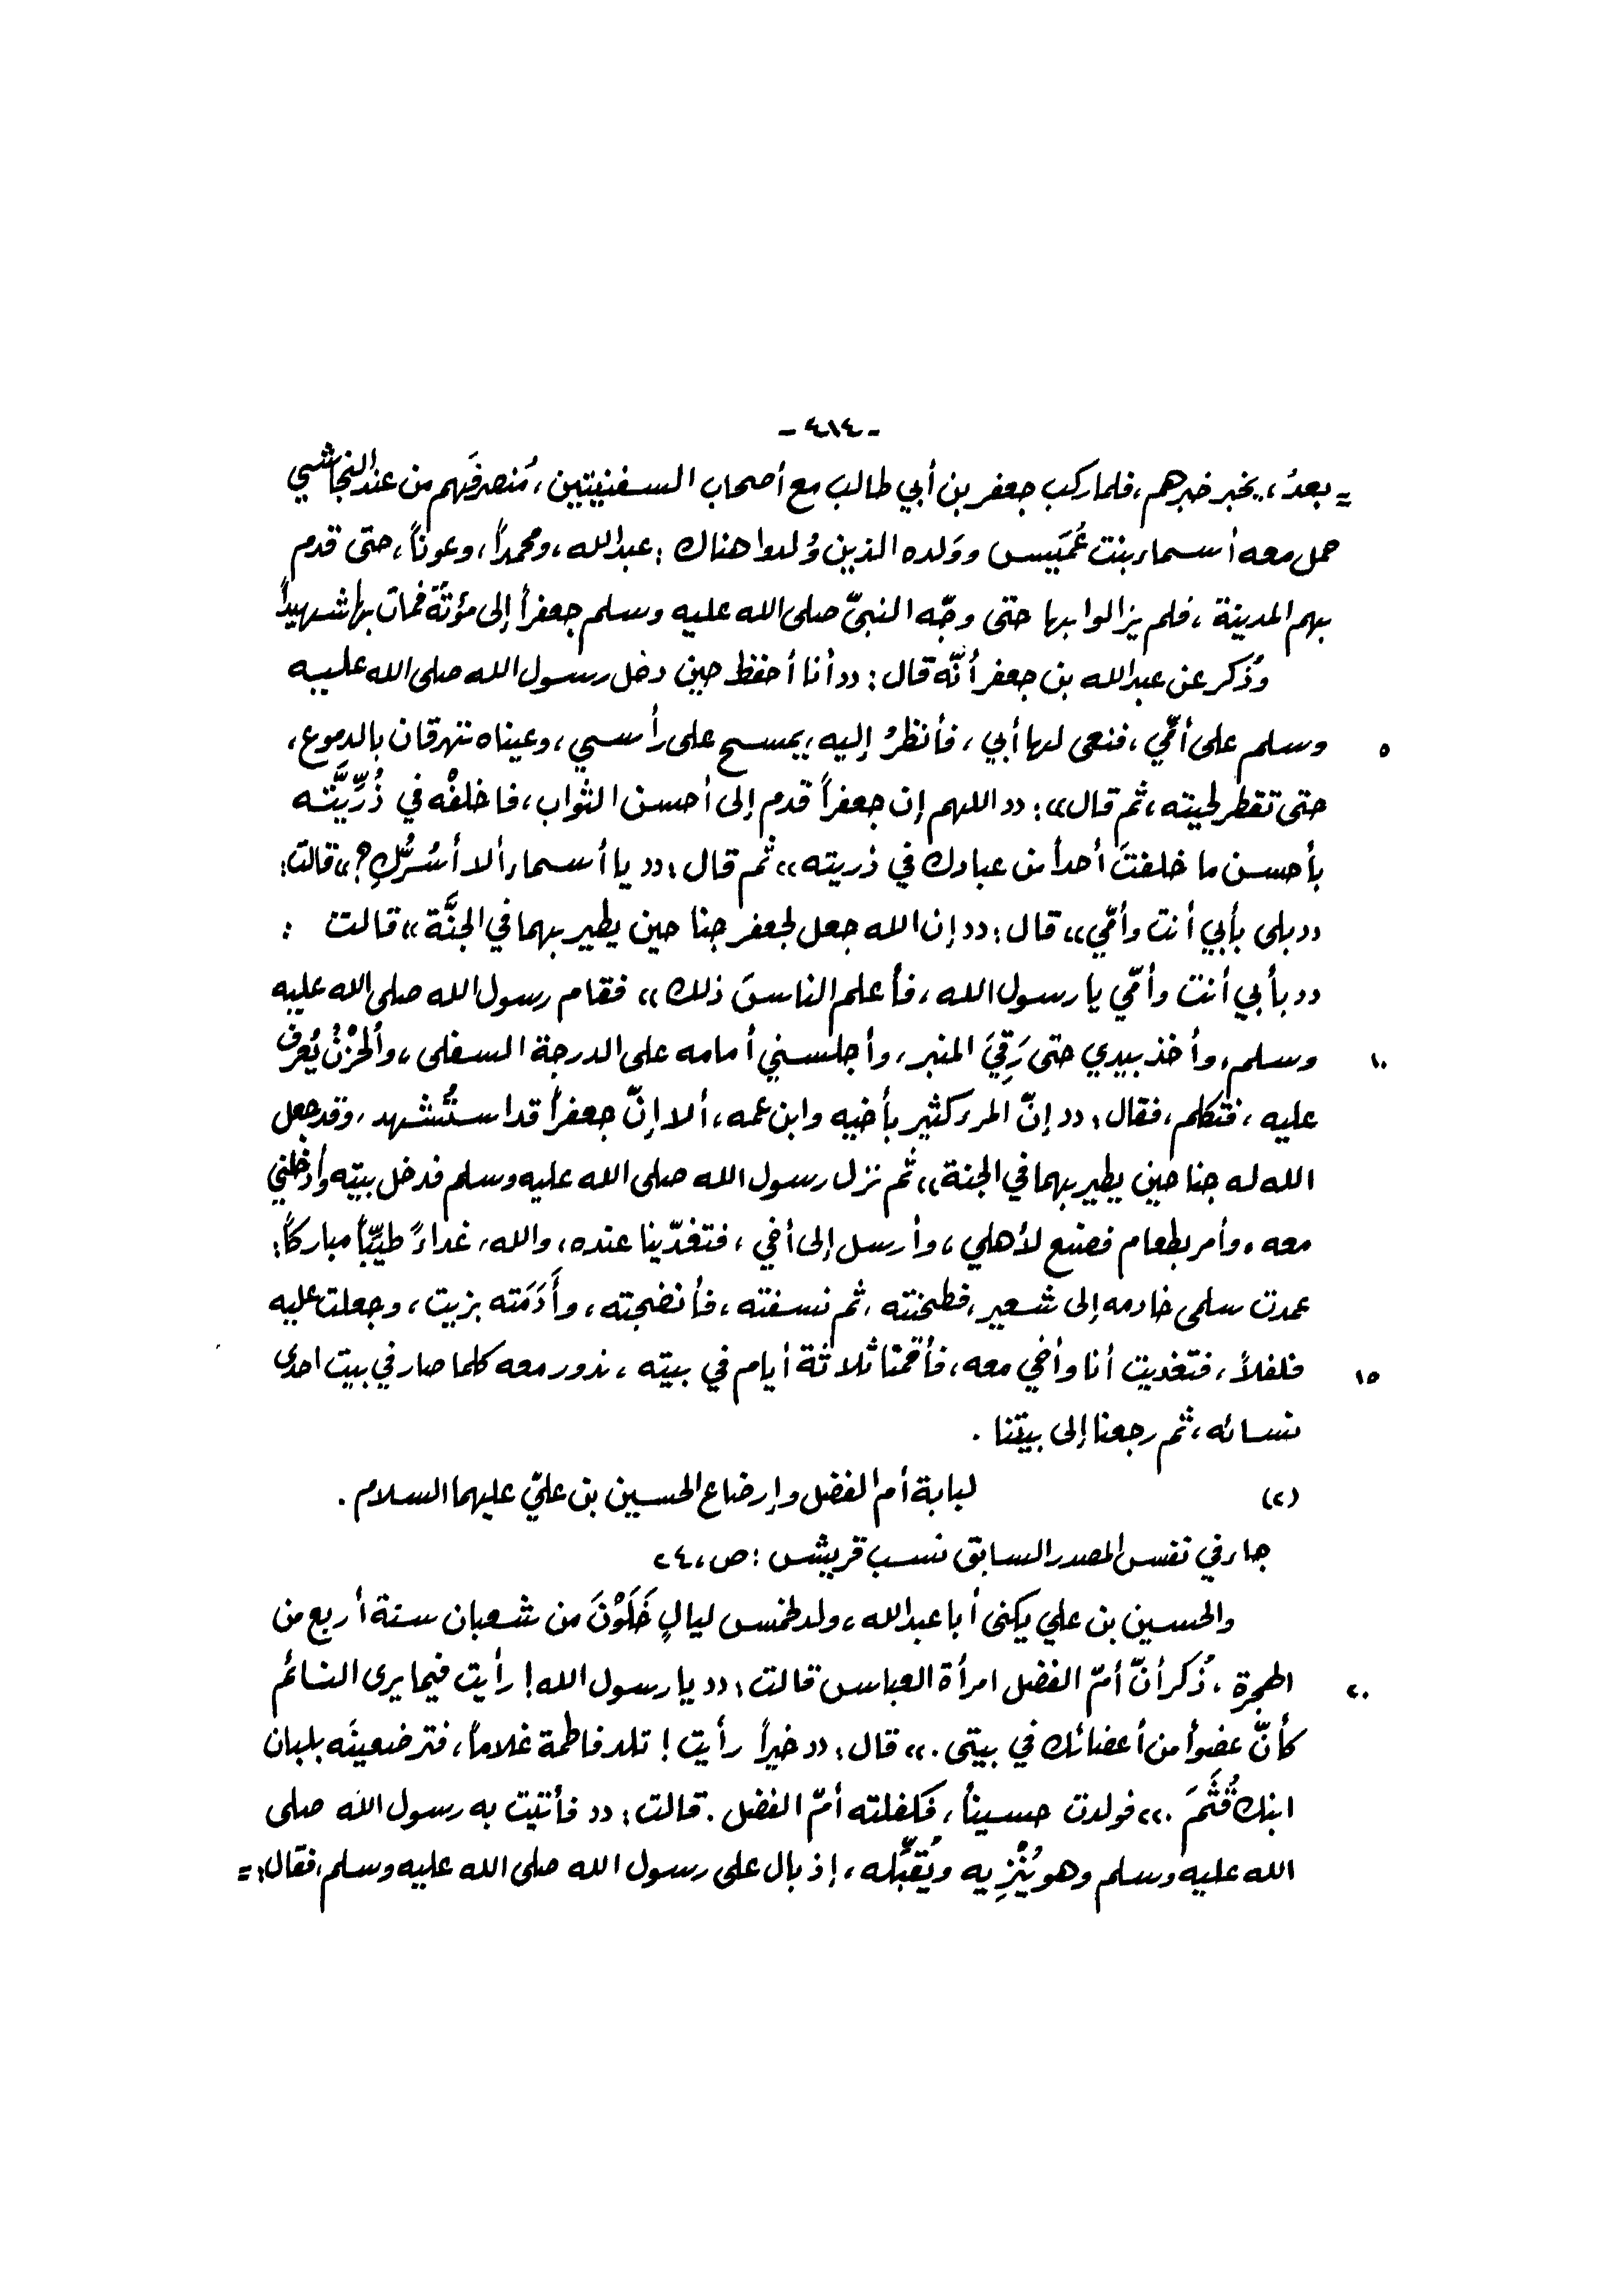 - ٤١٤ -
= بعدُ، يخبر خبرهم، فلما ركب جعفر بن أبي طالب مع أصحاب السفينيتين، مُنصرَفَهم من عند النجاشي
حمل معه أسماء بنت عُمَيس ووَلده الذين وُلدوا هناك : عبدالله، ومحمداً، وعوناً، حتى قدم
بهم المدينة، فلم يزالوا بها حتى وجّه النبيّ صلى الله عليه وسلم جعفراً إلى مؤتة فمات بها شهيداً
وذُكر عن عبدالله بن جعفر أنّه قال : «أنا أحفظ حين دخل رسول الله صلى الله عليه
٥ وسلم على أمّي، فنعى لها أبي، فأنظرُ إليه، يمسح على رأسي، وعيناه تهرقان بالدموع،
حتى تقطر لحيته، ثم قال» : «اللهم إن جعفراً قدم إلى أحسن الثواب، فاخلفْه في ذُرِّيَّته
بأحسن ما خلفتَ أحداً من عبادك في ذريته» ثم قال : «يا أسماء ألا أسُرُّكِ؟» قالت:
«بلى بأبي أنت وأمّي» قال : «إن الله جعل لجعفر جناحين يطير بهما في الجنَّة» قالت :
«بأبي أنت وأمّي يا رسول الله، فأعلم الناسَ ذلك» فقام رسول الله صلى الله عليه
١٠ وسلم، وأخذ بيدي حتى رَقِيَ المنبر، وأجلسني أمامه على الدرجة السفلى، والحُزْنُ يُعرف
عليه، فتكلم، فقال : «إنّ المرء كثير بأخيه وابن عمه، ألا إنّ جعفراً قد استُشهد، وقد جعل
الله له جناحين يطير بهما في الجنة»، ثم نزل رسول الله صلى الله عليه وسلم فدخل بيته وأدخلني
معه، وأمر بطعام فصنع لأهلي، وأرسل إلى أخي، فتغدّينا عنده، والله، غداءً طيّباً مباركاً:
عمدت سلمى خادمه إلى شعير، فطحنته، ثم نسفته، فأنضجته، وأَدَمَته بزيت، وجعلت عليه
١٥ فلفلاً، فتغديت أنا وأخي معه، فأقمنا ثلاثة أيام في بيته، ندور معه كلما صار في بيت احدى
نسائه، ثم رجعنا إلى بيتنا .
(٢) لبابة أم الفضل وإرضاع الحسين بن عليّ عليهما السلام .
جاء في نفس المصدر السابق نسب قريش : ص، ٢٤
والحسين بن علي يكنى أبا عبدالله، ولد لخمس ليالٍ خَلَوْنَ من شعبان سنة أربع من
٢٠ الهجرة، ذُكر أنّ أمّ الفضل امرأة العباس قالت : «يا رسول الله ! رأيت فيما يرى النائم
كأنّ عضواً من أعضائك في بيتي .» قال : «خيراً رأيت ! تلد فاطمة غلاماً، فترضعينَه بلبان
ابنك قُثَمَ .» فولدت حسيناً، فكفلته أمّ الفضل . قالت : «فأتيت به رسول الله صلى
الله عليه وسلم وهو يُنْزِيه ويُقَبِّله، إذ بال على رسول الله صلى الله عليه وسلم، فقال: =